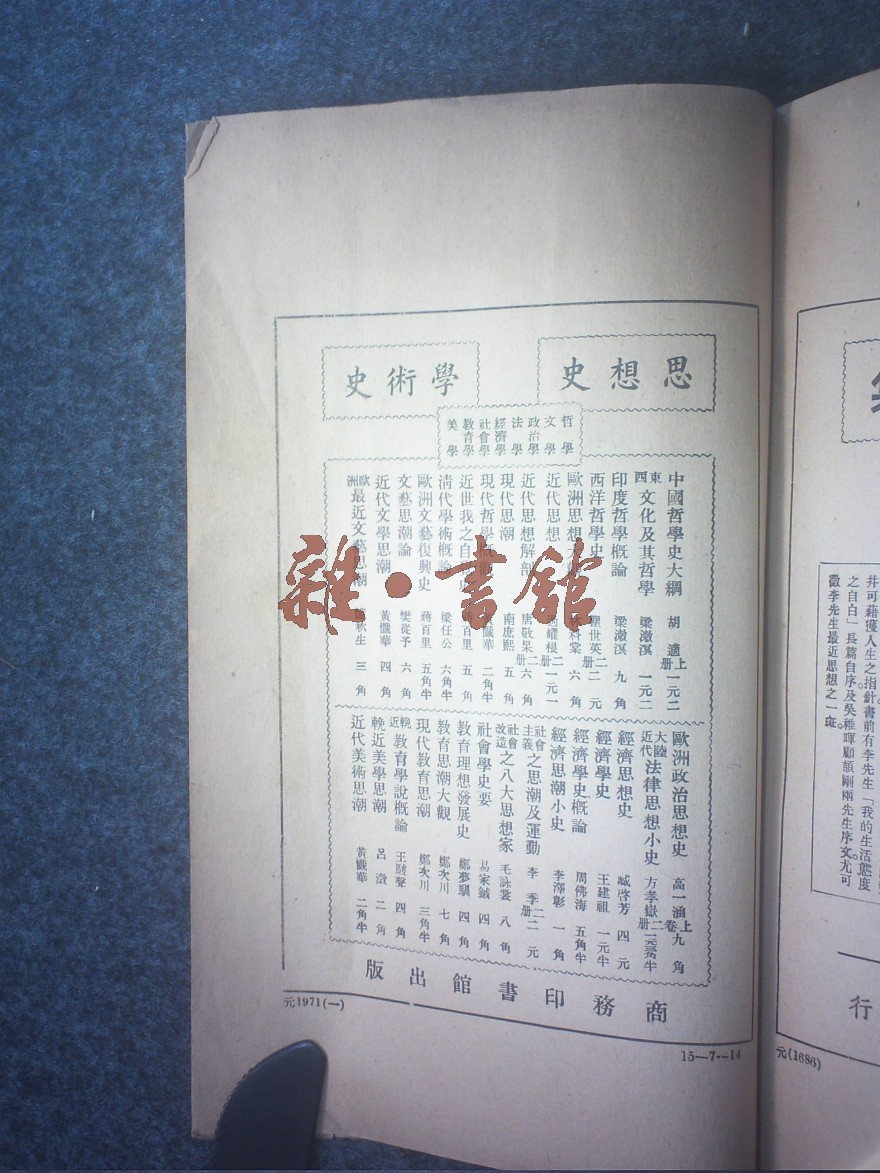 思想史
學術史
哲學
文學
政治學
法學
經濟學
社會學
教育學
美學
中國哲學史大綱 胡適 上册 一元二
東西文化及其哲學 梁漱溟 一元二
印度哲學概論 梁漱溟 九角
西洋哲學史 瞿世英 二册 二元
歐洲思想大 科棠 六角
近代思想 過耀根 二册 一元一
近代思想解剖 唐敬杲 二册 六角
現代思潮 南庶熙 五角
現代哲學概觀 黃懺華 二角半
近世我之自 蔣百里 五角
清代學術概論 梁任公 六角半
歐洲文藝復興史 蔣百里 五角半
文藝思潮論 樊從予 六角
近代文學思潮 黃懺華 四角
歐洲最近文藝思潮 秋生 三角
歐洲政治思想史 高一涵 上卷 九角
大陸近代法律思想小史 方孝嶽 二册
經濟思想史 臧啓芳 四元
經濟學史 王建祖 一元半
經濟學史概論 周佛海 五角半
經濟思潮小史 李澤彰 一角
社會主義之思潮及運動 李季 二册 二元
社會改造之八大思想家 毛詠裳 八角
社會學史要 易家鉞 四角
教育理想發展史 鄭夢馴 四角
教育思潮大觀 鄭次川 七角
現代教育思潮 鄭次川 三角半
輓近教育學說概論 王駿聲 四角
輓近美學思潮 呂澂 二角
近代美術思潮 黃懺華 二角半
商務印書館出版
元1971(一)
15—7—14
雜·書館
井可藉獲人生之指針書前有李先生「我的生活態度
之自白」長篇自序及吳稚暉顧頡剛兩先生序文尤可
徵李先生最近思想之一斑。
行
元(1686)